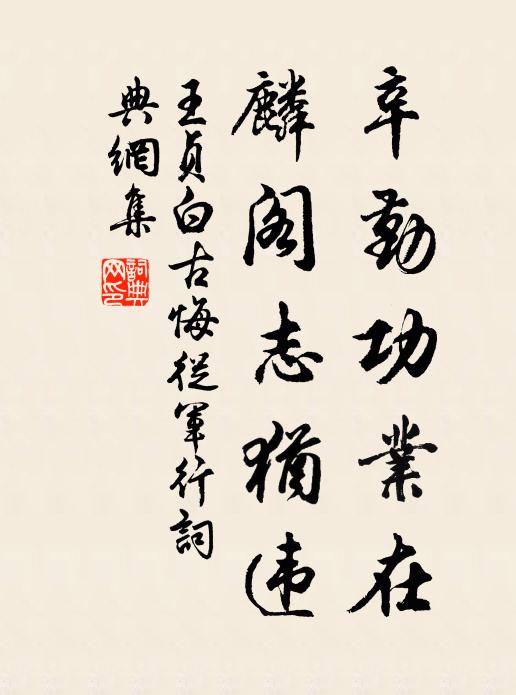 辛勤功業在
麟阁志猶违
王贞白古悔從軍行詞
典網集
詞典
网印